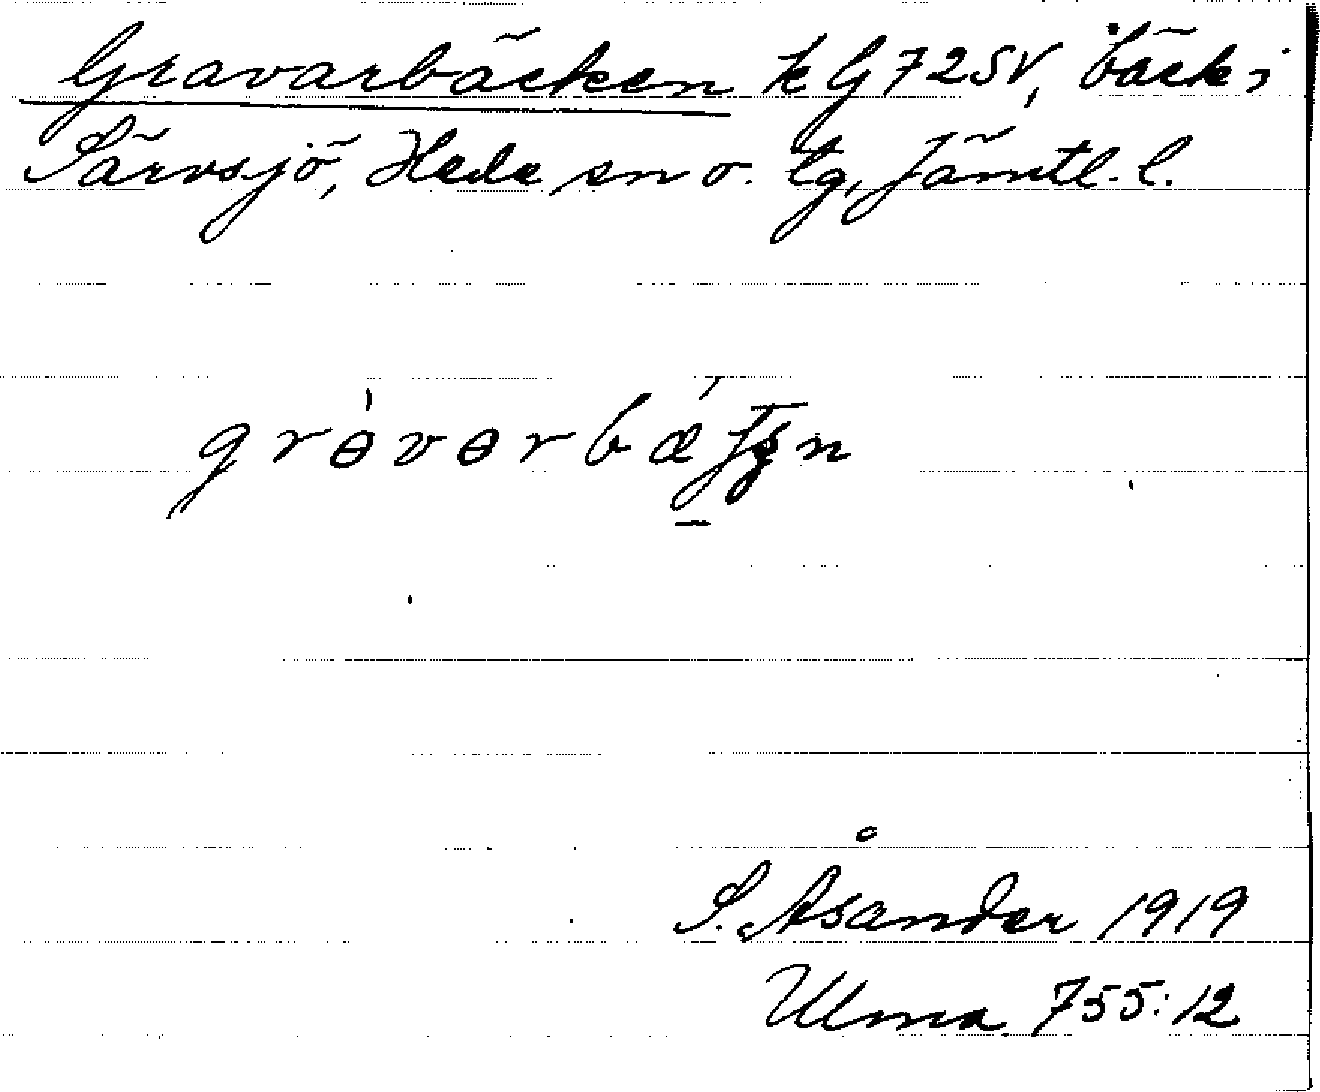 Gravarbäcken k G 72 SV, bäck i
Särvsjö, Hede sn o. tg, Jämtl. l.
S. Åsander 1919
Ulma 755:12